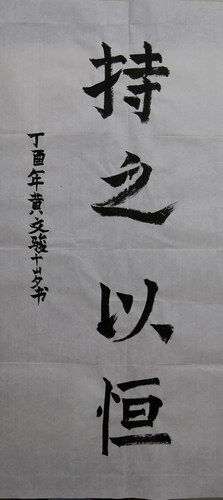 持之以恒
丁酉年黄文骏十岁书